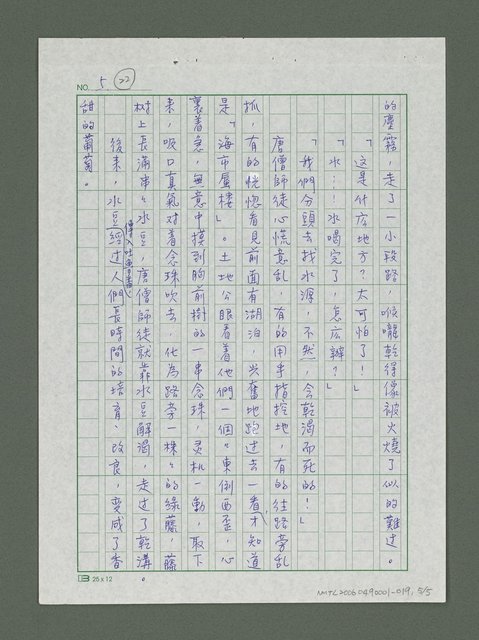 NO. 5 22
的塵霧，走了一小段路，喉嚨乾得像被火燒了似的難过。
「這是什広地方？太可怕了！」
「水！水喝完了，怎広辦？」
「我們分頭去找水源，不然，会乾渴而死的！」
唐僧師徒心慌意乱，有的用手指挖地，有的往路旁乱
抓，有的恍惚看見前面有湖泊，兴奮地跑过去一看，才知道
是「海市蜃楼」。土地公眼看着他們一個々東倒西歪，心
裏着急，無意中摸到胸前掛的一串念珠，灵机一動，取下
来，吸口真氣对着念珠吹去，化為路旁一株々的綠藤，藤
树上長滿串々水豆，唐僧師徒就靠水豆解渴，走过了乾溝。
後来，水豆傳入吐魯番，經过人們長時間的培育、改良，变成了香
甜的葡萄。
25 x 12
NMTL20060490001-019, 5/5